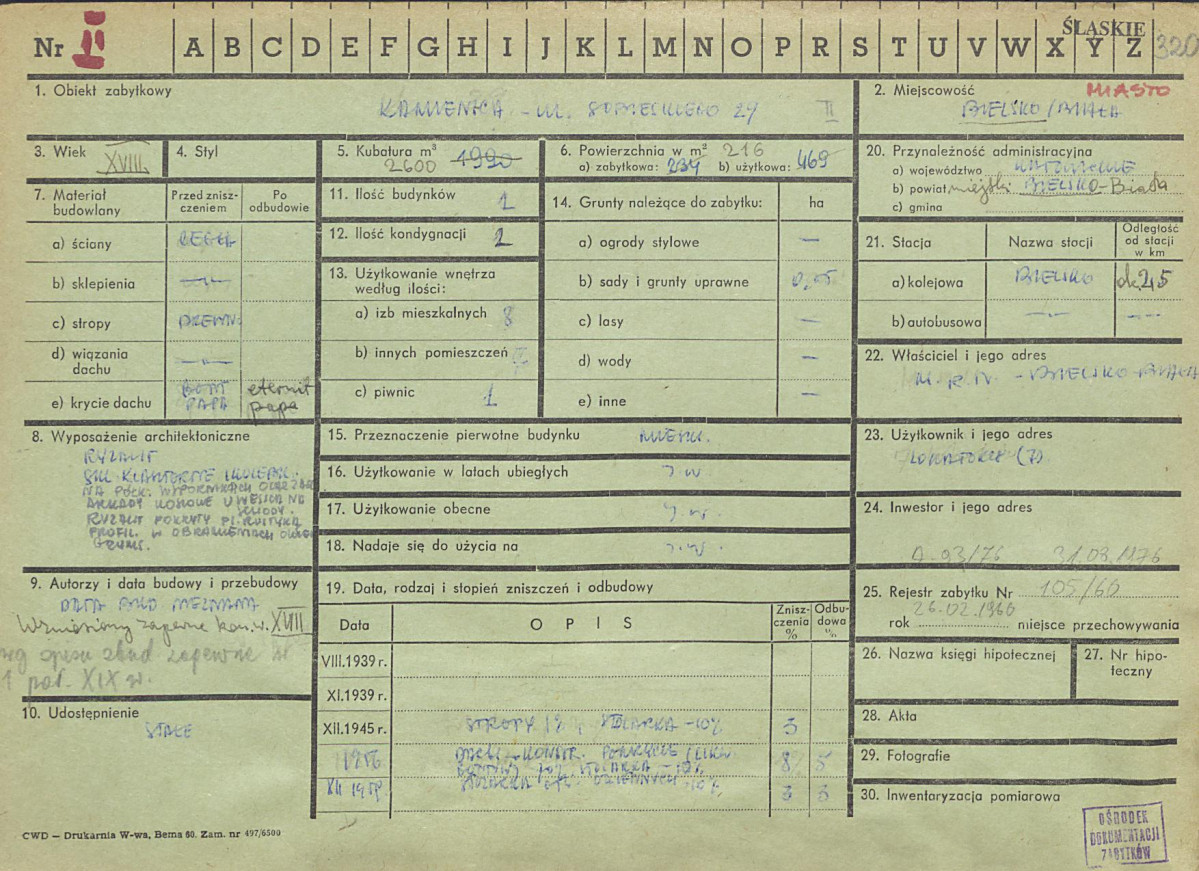 Nr II A B C D E F G H I J K L M N O P R S T U V W X Y Z ŚLĄSKIE 320
1. Obiekt zabytkowy
KAMIENICA - ul. SOBIESKIEGO 27 II
2. Miejscowość MIASTO
BIELSKO/BIAŁA
3. Wiek XVIII.
4. Styl
5. Kubatura m³
2600 1990
6. Powierzchnia w m² 216
a) zabytkowa: 234 b) użytkowa: 469
20. Przynależność administracyjna
a) województwo
b) powiat miejski BIELSKO-Biała
c) gmina
7. Materiał budowlany
Przed zniszczeniem
Po odbudowie
a) ściany CEGŁA
b) sklepienia —„—
c) stropy DREWN.
d) wiązania dachu —„—
e) krycie dachu PAPA eternit papa
11. Ilość budynków 1
12. Ilość kondygnacji 2
13. Użytkowanie wnętrza według ilości:
a) izb mieszkalnych 8
b) innych pomieszczeń
c) piwnic 1
14. Grunty należące do zabytku: ha
a) ogrody stylowe —
b) sady i grunty uprawne
c) lasy —
d) wody —
e) inne —
21. Stacja
Nazwa stacji
Odległość od stacji w km
a) kolejowa BIELSKO ok. 2,5
b) autobusowa —„— —„—
22. Właściciel i jego adres
M.R.N. - BIELSKO-BIAŁA
8. Wyposażenie architektoniczne
RYZALIT
SKL. KLASZTORNE I KOLEBK.
NA PÓŁK. WSPORNIKACH ORAZ
ARKADY KOSZOWE U WEJŚCIA NA
SCHODY.
RYZALIT POKRYTY PL. RUSTYKĄ
PROFIL. W OBRAMIENIACH OKIEN
GZYMS.
15. Przeznaczenie pierwotne budynku MIESZK.
16. Użytkowanie w latach ubiegłych j.w.
17. Użytkowanie obecne j.w.
18. Nadaje się do użycia na j.w.
23. Użytkownik i jego adres
LOKATORZY (7)
24. Inwestor i jego adres
A-93/76 31.08.1976
9. Autorzy i data budowy i przebudowy
Wzniesiony zapewne kon. w. XVIII
wg opisu zbud zapewne w
1 poł. XIX w.
10. Udostępnienie
STAŁE
19. Data, rodzaj i stopień zniszczeń i odbudowy
Data
OPIS
Zniszczenia %
Odbudowa %
VIII.1939 r.
XI.1939 r.
XII.1945 r. STROPY STOLARKA -10% 3
1956 KONSTR. STOLARKA -10% 8 5
XII 1959 STOLARKA 10% 3 3
25. Rejestr zabytku Nr 105/60
26.02.1960
rok miejsce przechowywania
26. Nazwa księgi hipotecznej
27. Nr hipoteczny
28. Akta
29. Fotografie
30. Inwentaryzacja pomiarowa
OŚRODEK
DOKUMENTACJI
ZABYTKÓW
CWD — Drukarnia W-wa, Bema 60. Zam. nr 497/6500